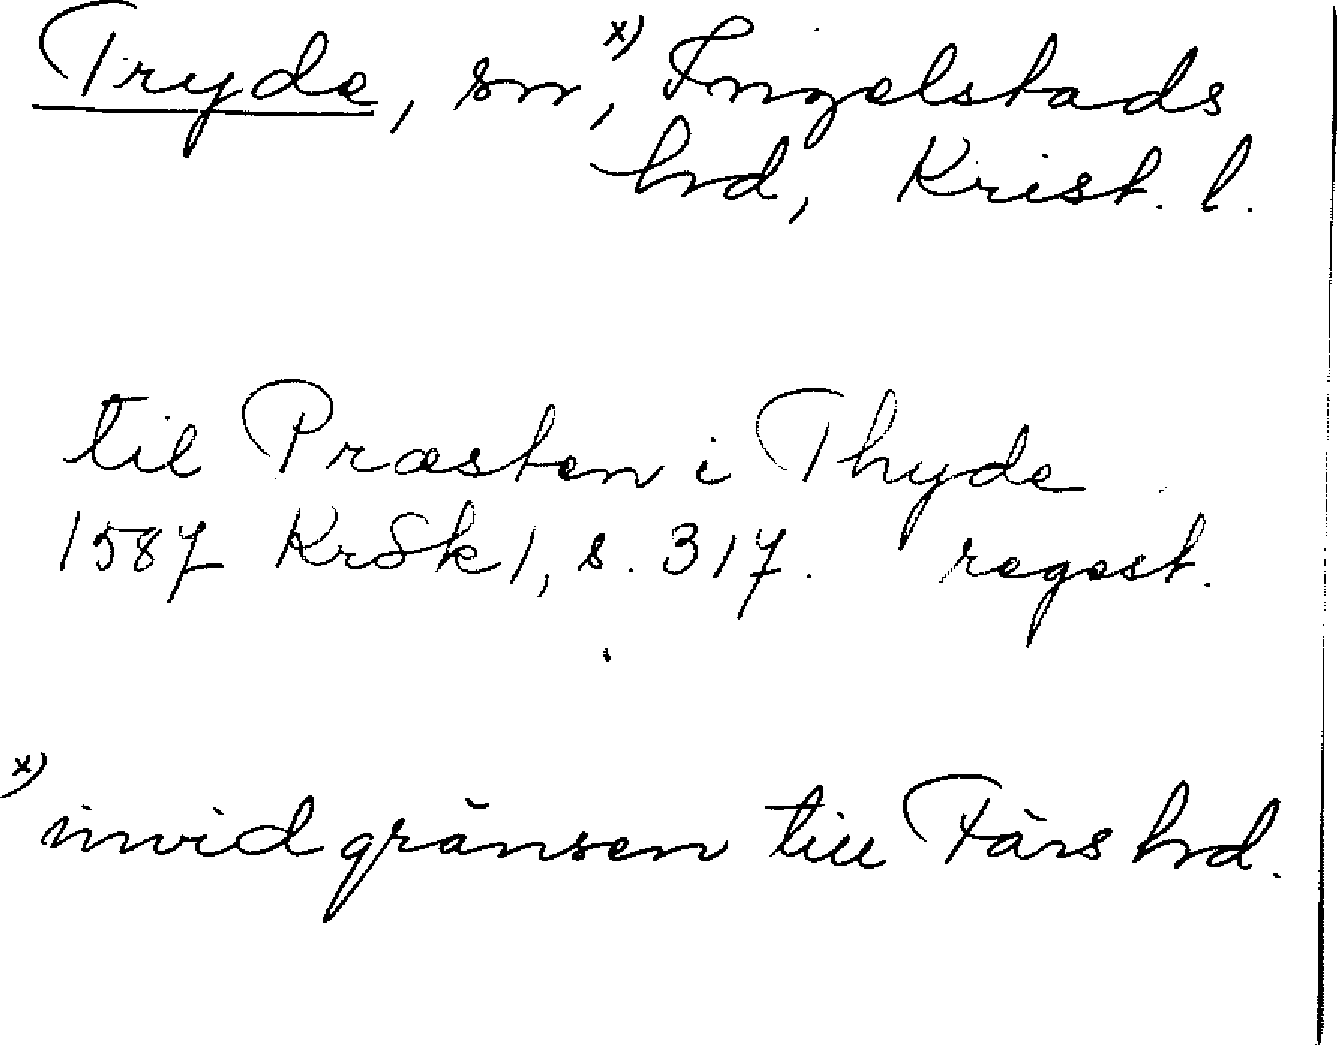 Tryde, sn,x) Ingelstads
hrd, Krist. l.
til Præsten i Thyde
1587 KrSk 1, s. 317. regest.
x) invid gränsen till Färs hrd.